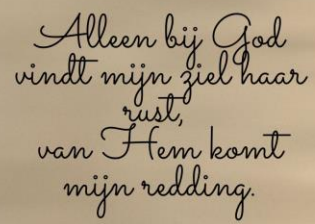 Alleen bij God
vindt mijn ziel haar
rust,
van Hem komt
mijn redding.